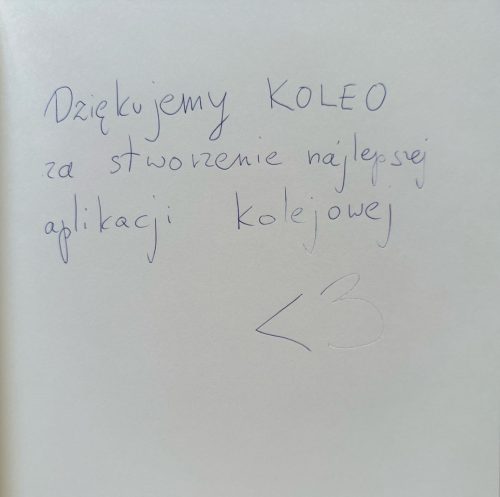 Dziękujemy KOLEO
za stworzenie najlepszej
aplikacji kolejowej
<3